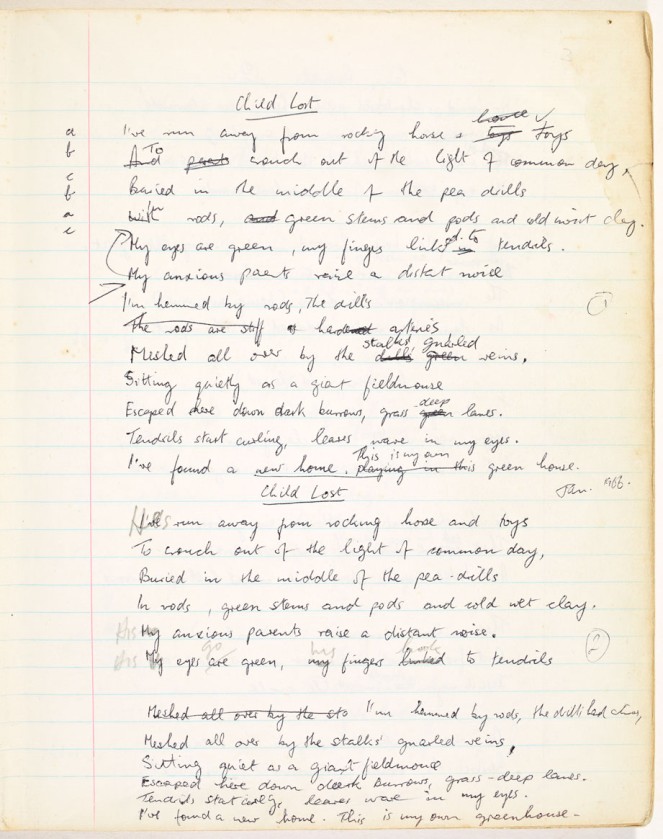 Child Lost
horse ✓
a I've run away from rocking horse & toys toys
b And To parts crouch out of the light of common day,
c Buried in the middle of the pea drills
b With In rods, and green stems and pods and cold moist clay.
a My eyes are green, my fingers linked to in tendrils.
c My anxious parents raise a distant noise
I'm hemmed by rods, The drills
①
The rods are stiff hardened arteries
Meshed all over by the stalks' gnarled drills green veins,
Sitting quietly as a giant fieldmouse
Escaped here down dark burrows, grass deep green lanes.
Tendrils start curling, leaves wave in my eyes.
I've found a new home. This is my own playing in this green house.
Jan. 1966.
Child Lost
He's I've run away from rocking horse and toys
To crouch out of the light of common day,
Buried in the middle of the pea-drills
In rods, green stems and pods and cold wet clay.
His My anxious parents raise a distant noise.
His My eyes are go green, my his fingers linked to tendrils
②
Meshed all over by the sto I'm hemmed by rods, the drills'
Meshed all over by the stalks' gnarled veins,
Sitting quiet as a giant fieldmouse
Escaped here down dark burrows, grass-deep lanes.
Tendrils start curling, leaves wave in my eyes.
I've found a new home. This is my own greenhouse.